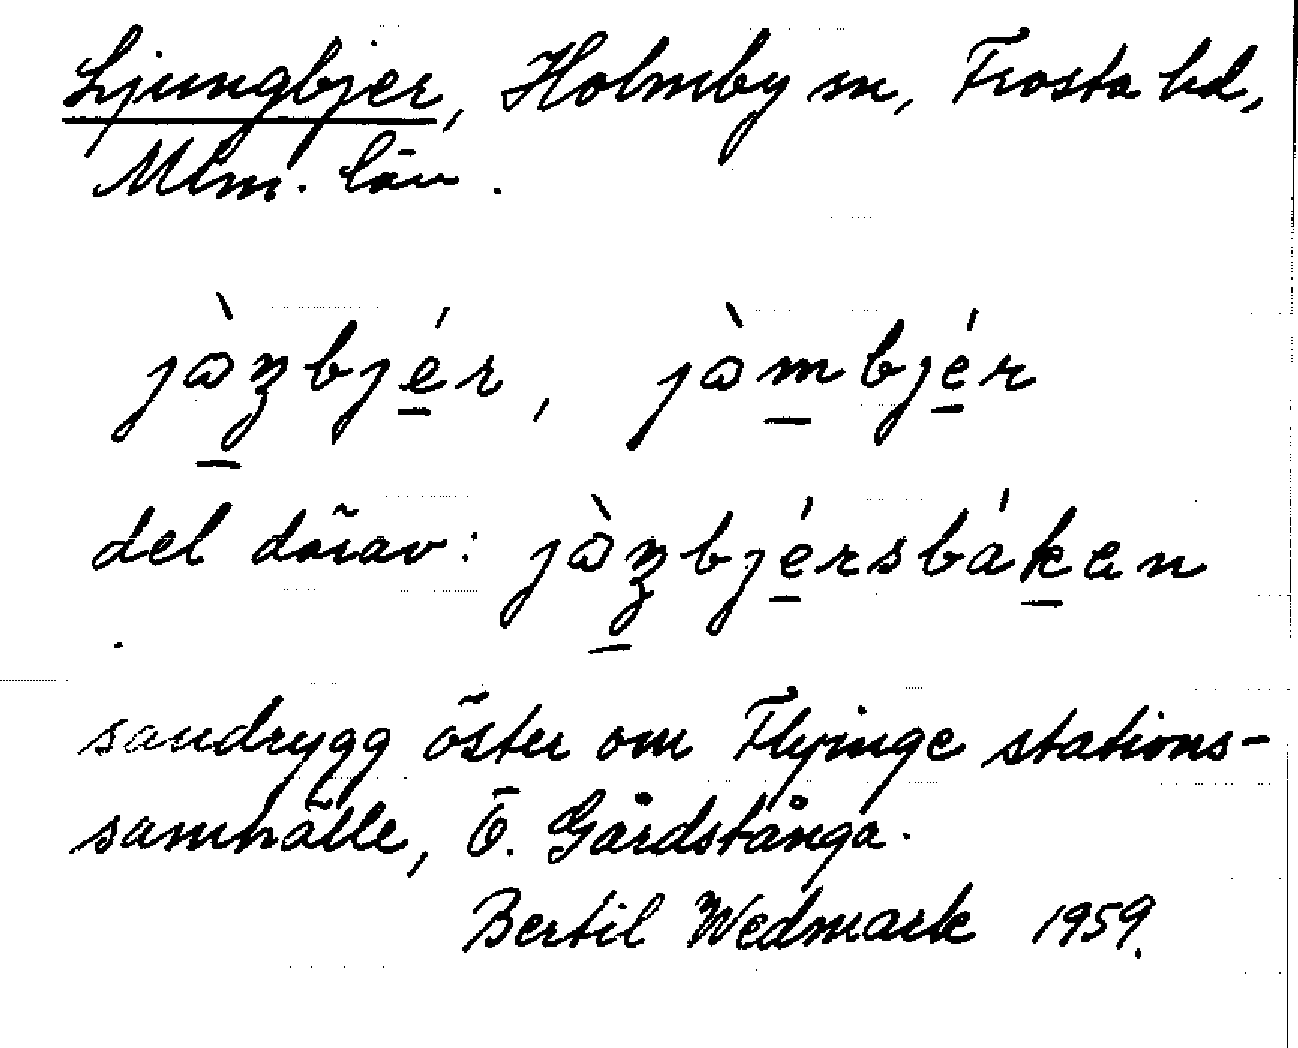 Ljungbjer, Holmby sn, Frosta hd,
Mlm. län.
jὼŋbjér, jὼmbjér
del därav: jὼŋbjérsbáken
sandrygg öster om Flyinge stations-
samhälle, Ö. Gårdstånga.
Bertil Wedmark 1959.